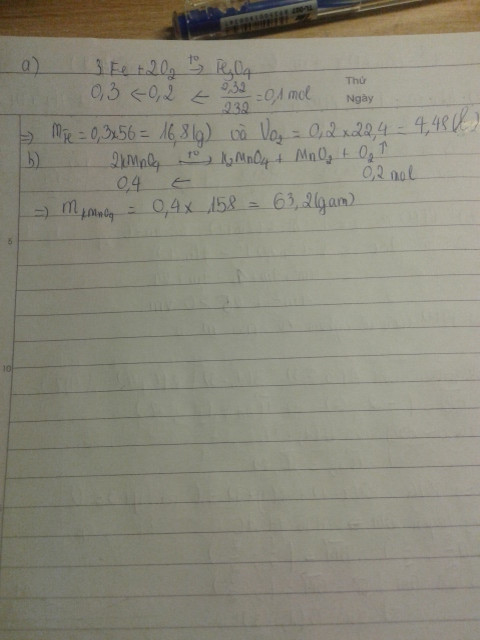 a) 3Fe + 2O2 t° → Fe3O4
0,3 ← 0,2 ← 0,32/232 = 0,1 mol
Thứ
Ngày
=> mFe = 0,3x56 = 16,8(g) và VO2 = 0,2 x 22,4 = 4,48(l)
b) 2KMnO4 t° → K2MnO4 + MnO2 + O2↑
0,4 ← 0,2 mol
=> mKMnO4 = 0,4 x 158 = 63,2(gam)
5
10